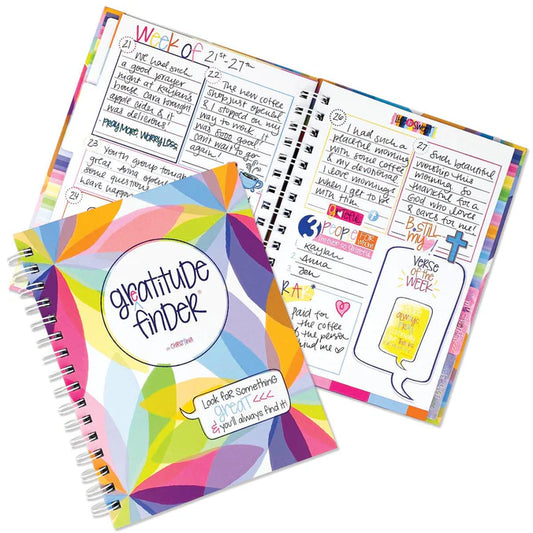 Week of 21st-27th
21
We had such
a good prayer
night at Kaylan's
house. Cara brought
apple cider & it
was delicious!
PRAY MORE WORRY LESS
22
The new coffee
shop just opened
& I stopped on my
way to work. It
was sooo good!
can't wait to go
again!
23 Youth group tonight
great. Anna
some
leave happy
24
26
I had such a
peaceful morning
with some coffee
& my devotional.
I love mornings
when I get to be
with Him.
27 Such beautiful
worship this
morning. So
thankful for a
God who loves
& cares for me!
3 PEOPLE
Kaylan
Anna
Jen
Paid for
the coffee
of the person
behind me
B. Still
my
VERSE
OF THE
WEEK
gratitude
finder®
BY CHRISTINA
Look for something
great <<<
& you'll always find it!